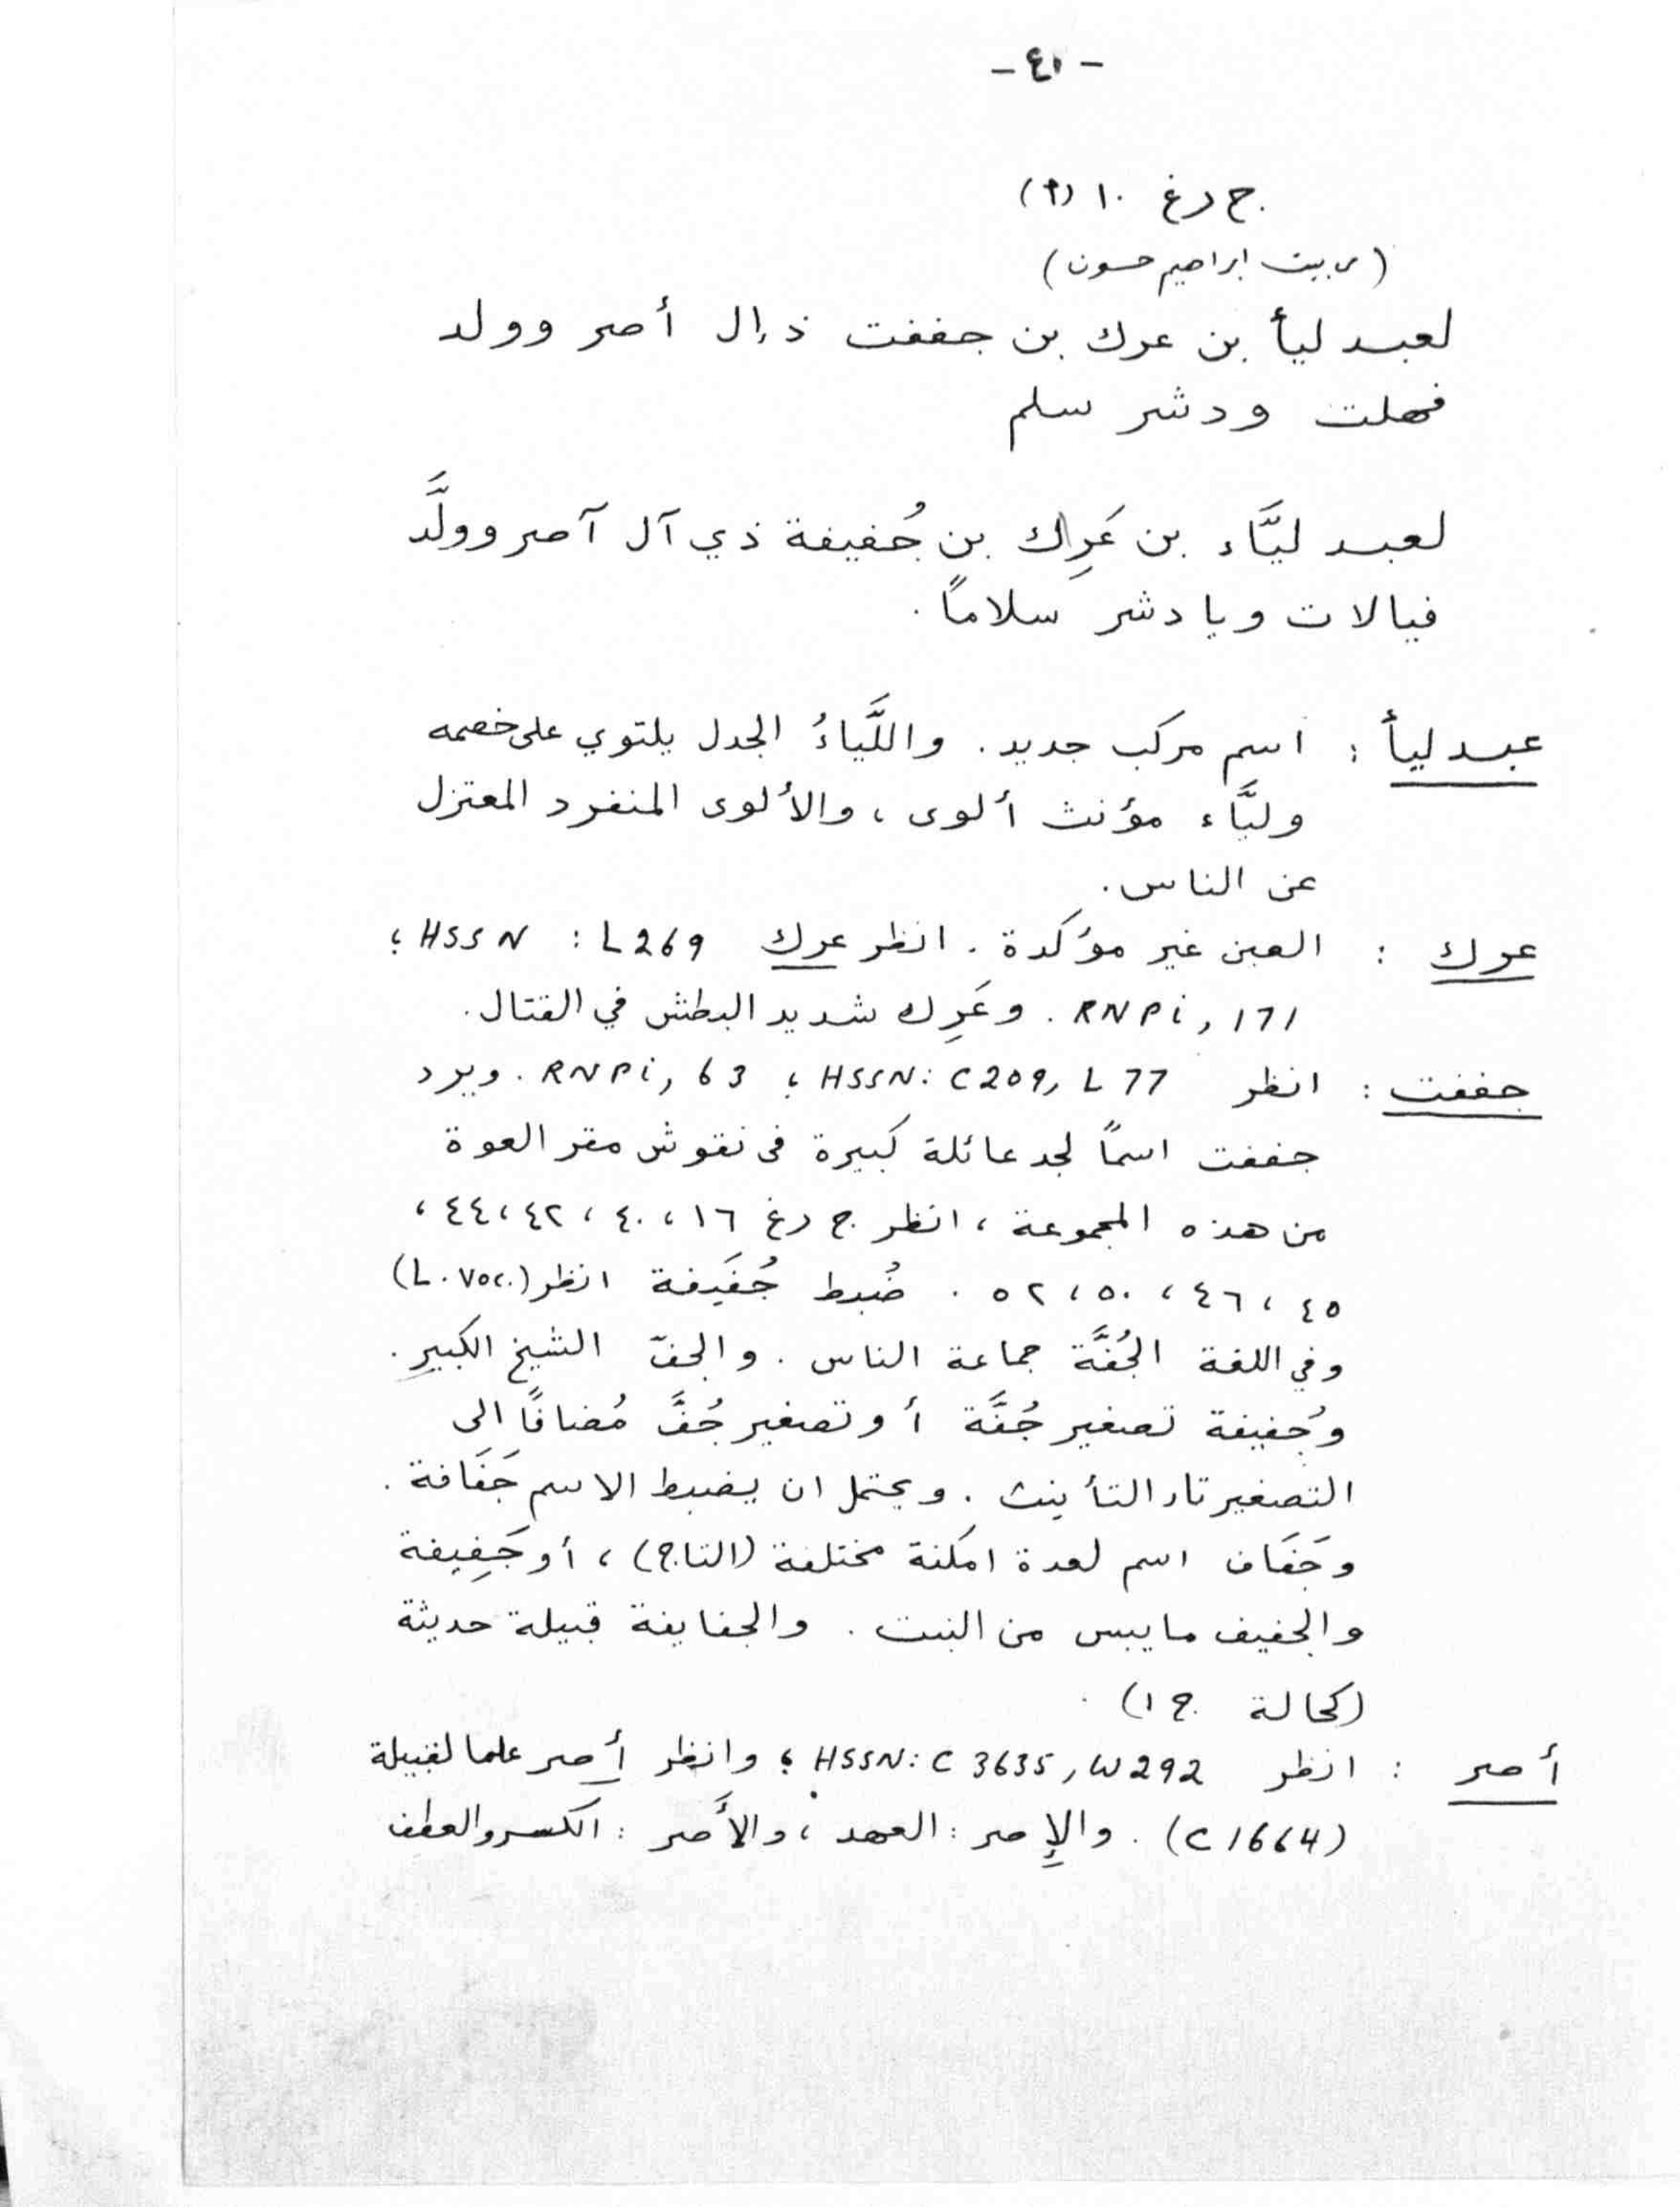 - ٤١ -
ج رغ ١٠ (٩)
( بيت ابراهيم حسون )
لعبد ليأ بن عرك بن جففت ذ إل أصر وولد
فهلت ودشر سلم
لعبد ليَّاء بن عَرِاك بن جُفيفة ذي آل آصر وولَّدَ
فيالات ويا دشر سلاماً .
عبد ليأ : اسم مركب جديد . واللَّياءُ الجدل يلتوي على خصمه
وليَّاء مؤنث ألوى ، والألوى المنفرد المعتزل
عن الناس .
عرك : العين غير مؤكدة . انظر عرك HSSN : L269 ؛
RNPi, 171 . وعَرِك شديد البطش في القتال .
جففت : انظر HSSN: C209, L77 ؛ RNPi, 63 . ويرد
جففت اسماً لجد عائلة كبيرة في نقوش مقر العوة
من هذه المجموعة ، انظر ج رغ ١٦ ، ٤٠ ، ٤٢ ، ٤٤ ،
٤٥ ، ٤٦ ، ٥٠ ، ٥٢ . ضُبط جُفَيفة انظر (L. voc.)
وفي اللغة الجُفَّة جماعة الناس . والجفّ الشيخ الكبير .
وجُفيفة تصغير جُفَّة أو تصغير جُفَّ مُضافاً الى
التصغير تاء التأنيث . ويحتمل ان يضبط الاسم جَفَافة .
وجَفَاف اسم لعدة امكنة مختلفة (التاج) ، أو جَفِيفة
والجفيف ما يبس من النبت . والجفايفة قبيلة حديثة
(كحالة ج ١) .
أصر : انظر HSSN: C 3635, W292 ؛ وانظر أصر علما لقبيلة
(C1664) . والإِصر : العهد ، والأَصر : الكسر والعطف